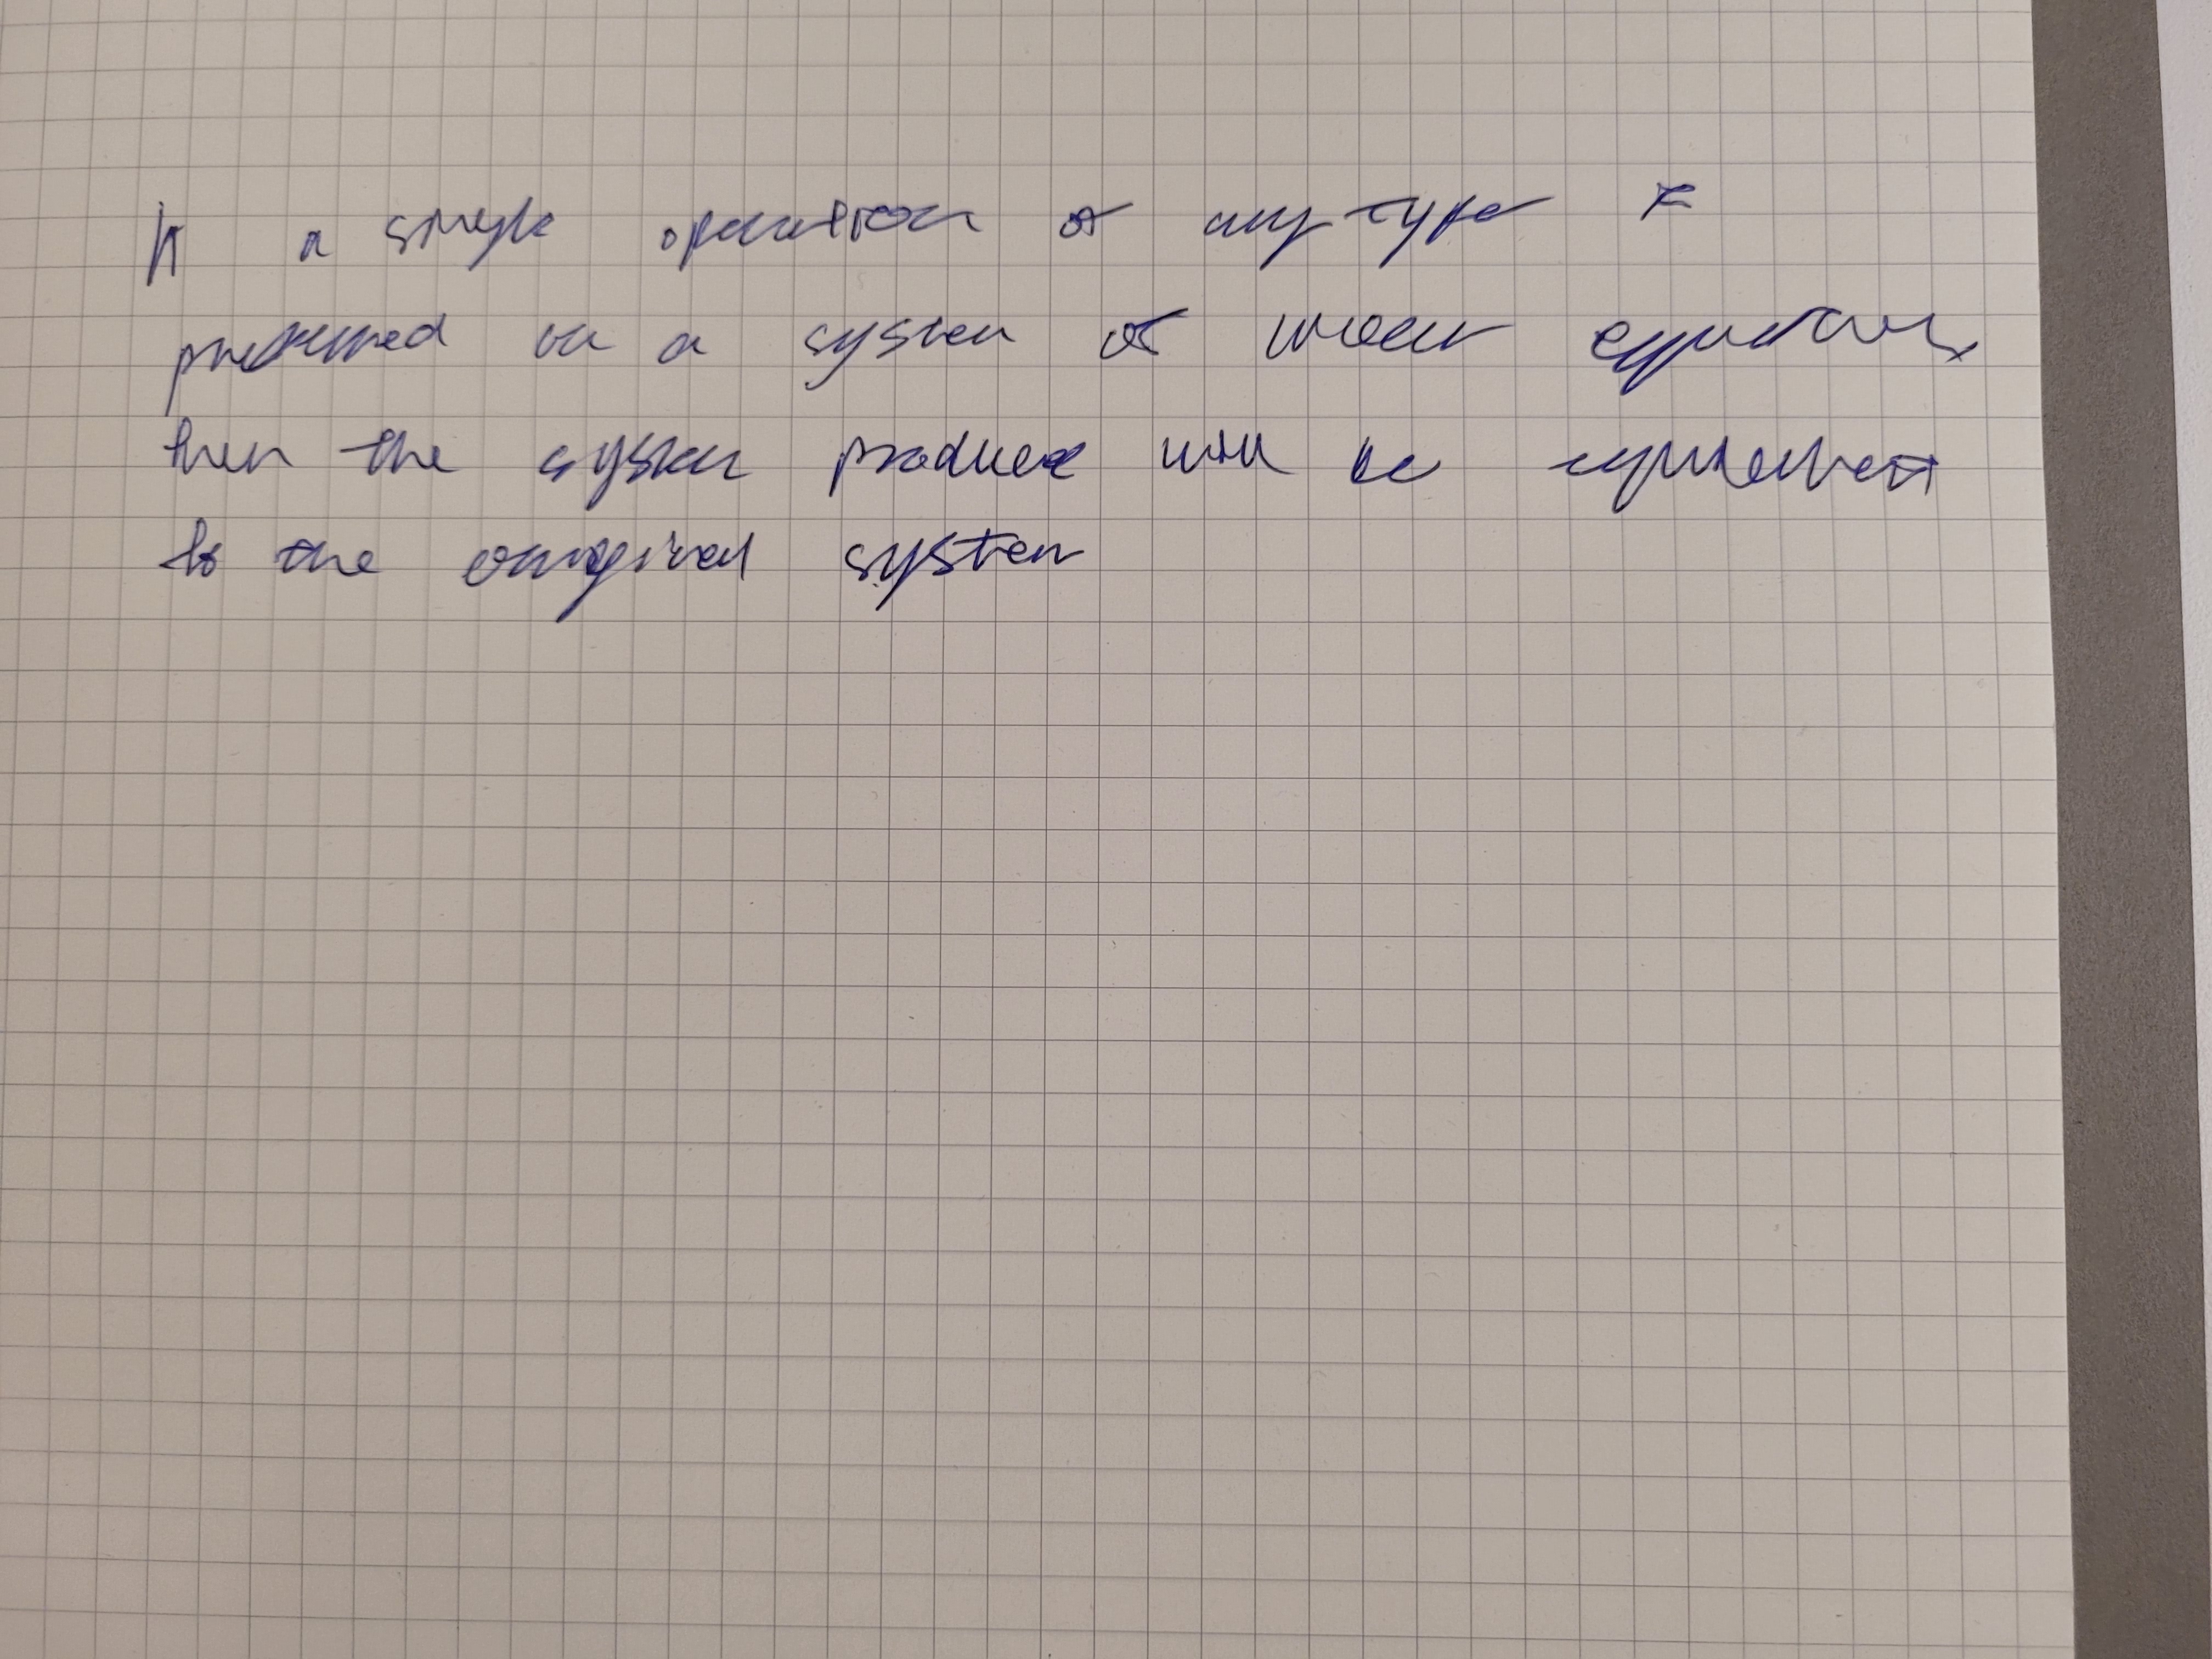 If a single operation of any type is
preformed on a system of linear equations,
then the system produced will be equivalent
to the original system